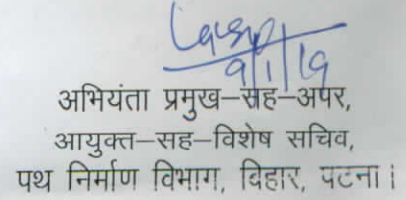 9/1/19
अभियंता प्रमुख–सह–अपर,
आयुक्त–सह–विशेष सचिव,
पथ निर्माण विभाग, बिहार, पटना।